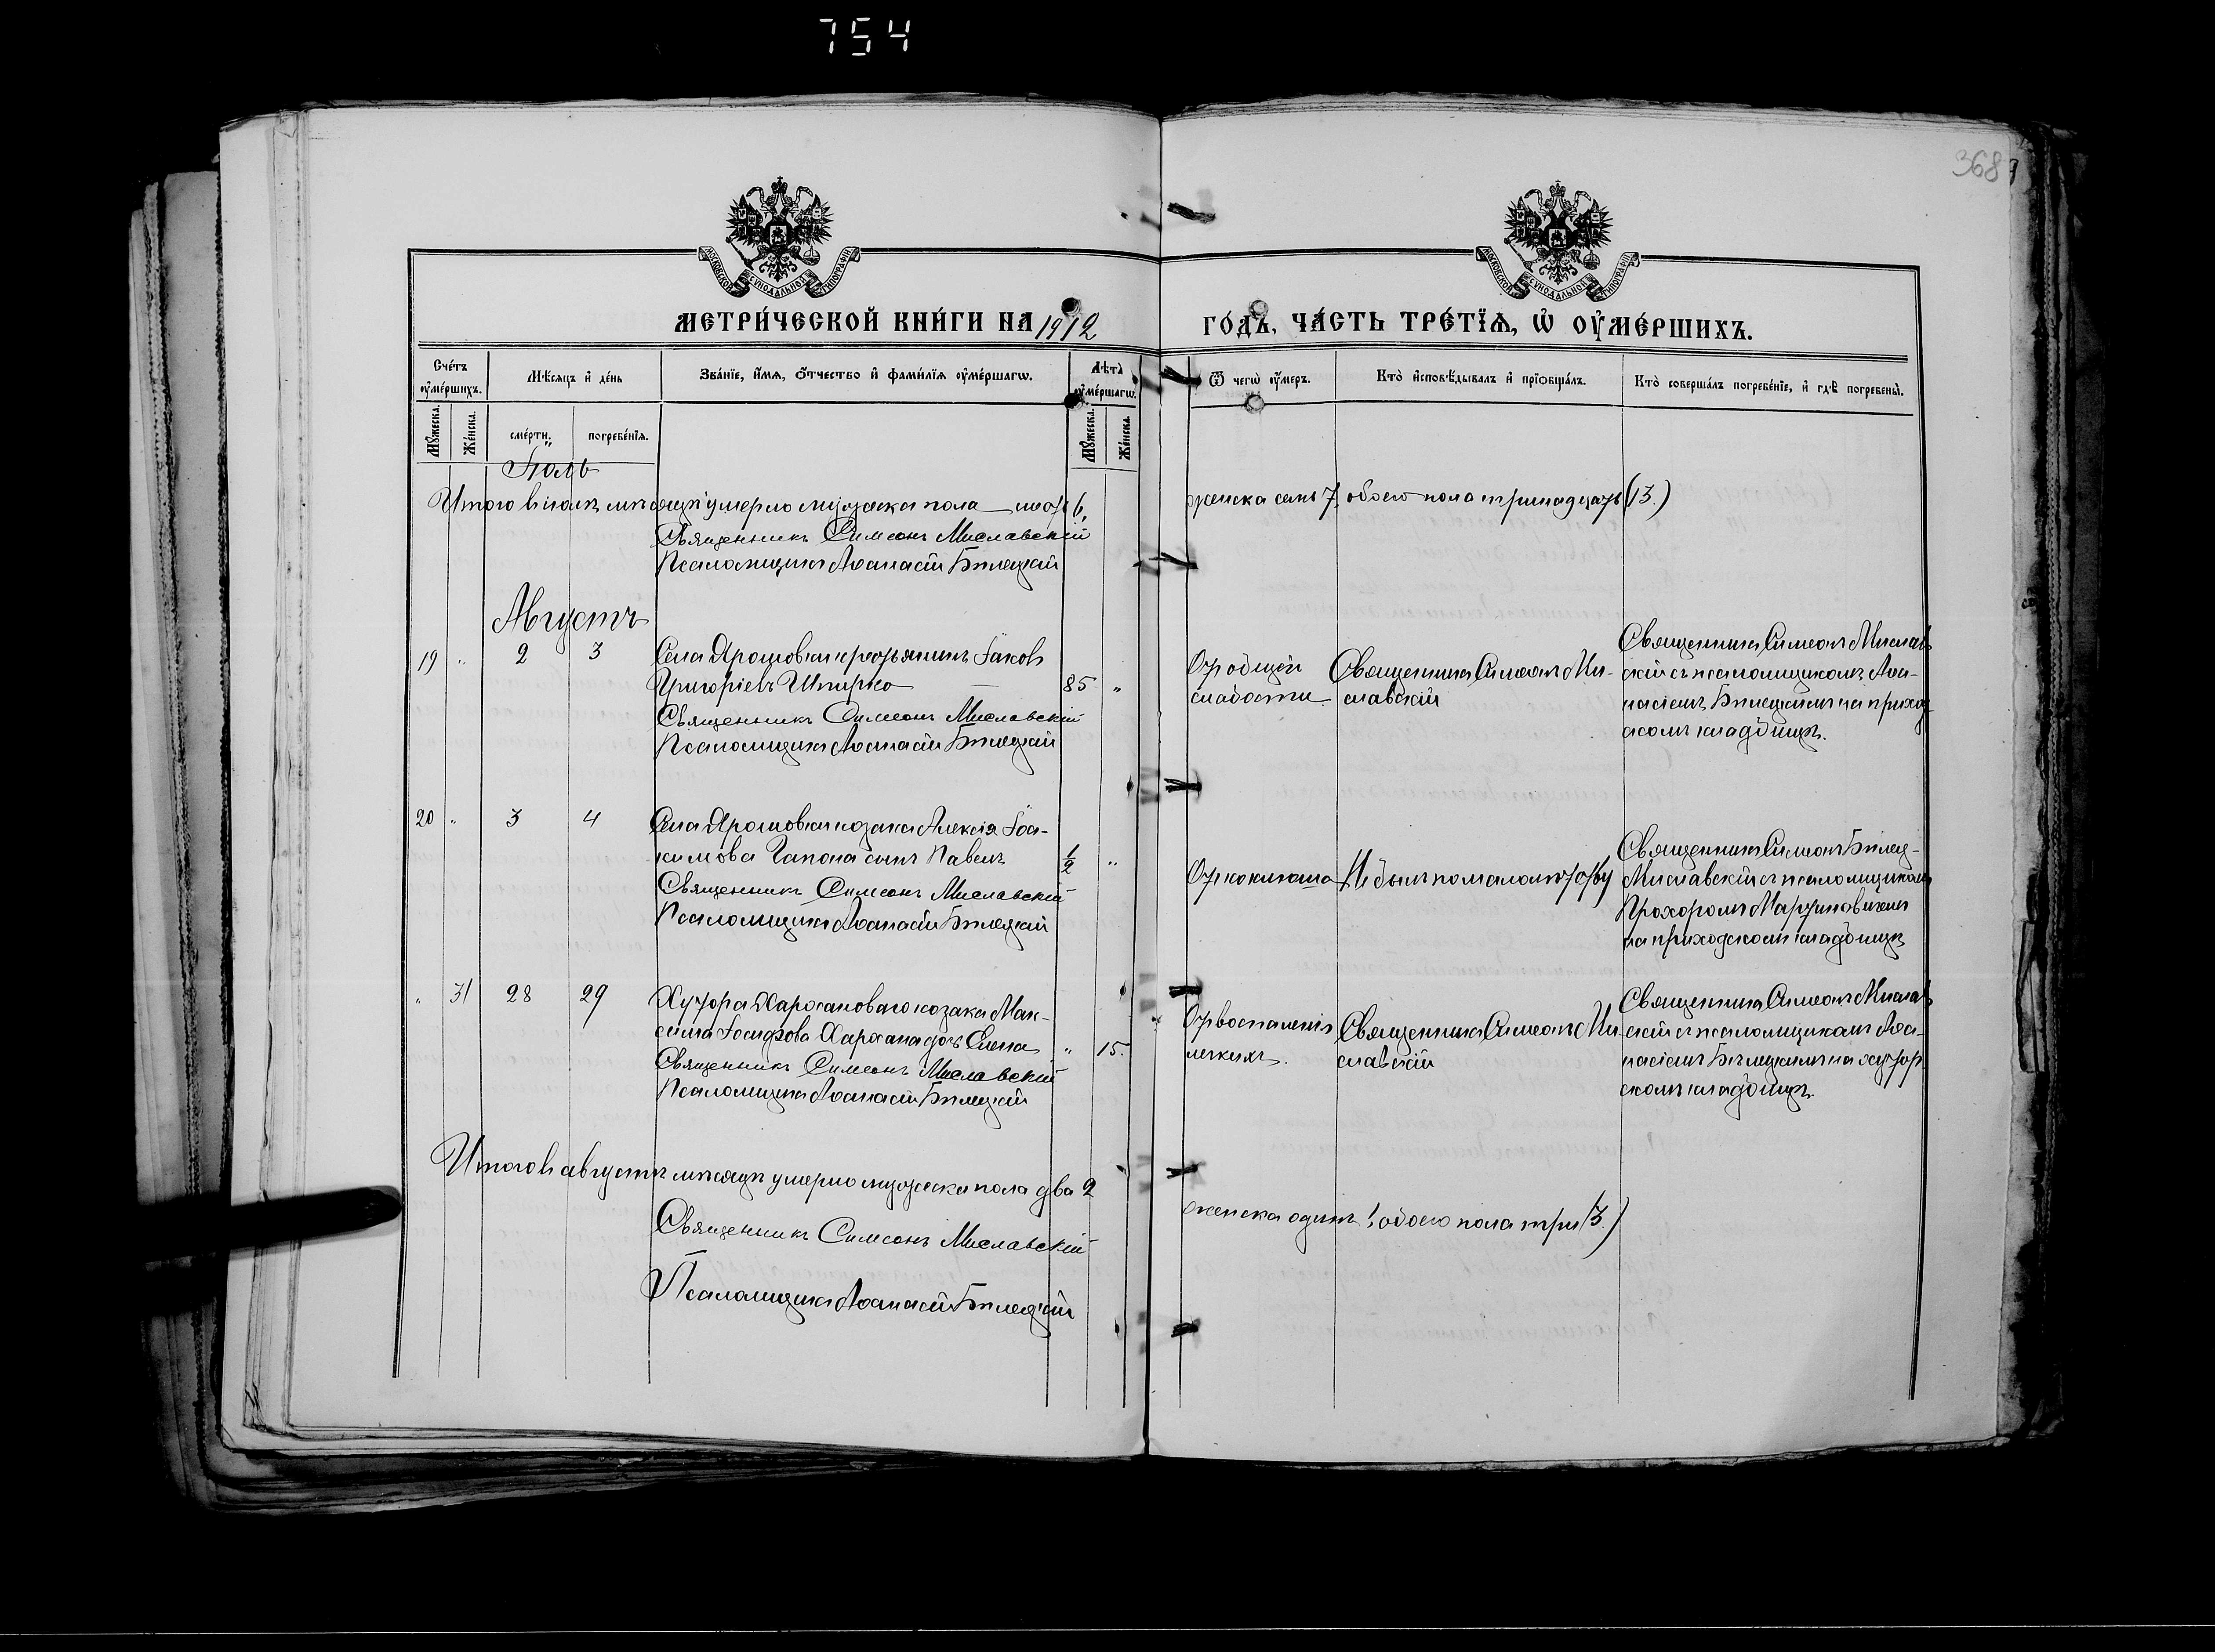 754
368
МОСКОВСКОЙ СУНОДАЛЬНОЙ ТИПОГРАФІИ
МОСКОВСКОЙ СУНОДАЛЬНОЙ ТИПОГРАФІИ
МЕТРИ́ЧЕСКОЙ КНИ́ГИ НА 1912
ГО́ДЪ, ЧА́СТЬ ТРЕ́ТЇѦ, Ѡ҆ ОУ҆МЕ́РШИХЪ.
Сче́тъ оу҆ме́ршихъ.
Мѣ́сѧцъ и҆ де́нь
Зва́нїе, и҆́мѧ, ѻ҆́тчество и҆ фами́лїѧ оу҆ме́ршагѡ.
Лѣта̀ оу҆ме́ршагѡ.
Ѿ чегѡ̀ оу҆́меръ.
Кто̀ и҆сповѣ́дывалъ и҆ прїѻбща́лъ.
Кто̀ соверша́лъ погребе́нїе, и҆ гдѣ̀ погребены̀.
Мꙋ́жеска.
Же́нска.
сме́рти.
погребе́нїѧ.
Мꙋ́жеска.
Же́нска.
Іюль
Итого въ іюлѣ мѣсяцѣ умерло мужеска пола — шесть 6,
женска семь 7, обоего пола тринадцать (13.)
Священникъ Симеонъ Миславскій
Псаломщикъ Аѳанасій Бѣлецкій
Августъ
19 " 2 3 Села Ярошовки крестьянинъ Іаковъ
Григоріевъ Шпирко — 85 "
Священникъ Симеонъ Миславскій
Псаломщикъ Аѳанасій Бѣлецкій
Отъ общей
слабости
Священникъ Симеонъ Ми-
славскій
Священникъ Симеонъ Мислав
скій съ псаломщикомъ Аѳа-
насіемъ Бѣлецкимъ на приход
скомъ кладбищѣ.
20 " 3 4 Села Ярошовки козака Алексія Іоа-
кимова Гапона сынъ Павелъ 1/2 "
Священникъ Симеонъ Миславскій
Псаломщикъ Аѳанасій Бѣлецкій
Отъ коклюша
Не былъ по малолѣтству
Священникъ Симеонъ Бѣлец-
Миславскій съ псаломщикомъ
Прохоромъ Мартиновичемъ
на приходскомъ кладбищѣ
" 31 28 29 Хутора Харханова го козака Мак-
сима Іосифова Хархана дочь Елена " 15.
Священникъ Симеонъ Миславскій
Псаломщикъ Аѳанасій Бѣлецкій
Отъ воспаленія
легкихъ.
Священникъ Симеонъ Ми-
славскій
Священникъ Симеонъ Мислав
скій съ псаломщикомъ Аѳа-
насіемъ Бѣлецкимъ на хутор
скомъ кладбищѣ.
Итого въ августѣ мѣсяцѣ умерло мужеска пола два 2
женска одинъ 1, обоего пола три (3.)
Священникъ Симеонъ Миславскій
Псаломщикъ Аѳанасій Бѣлецкій